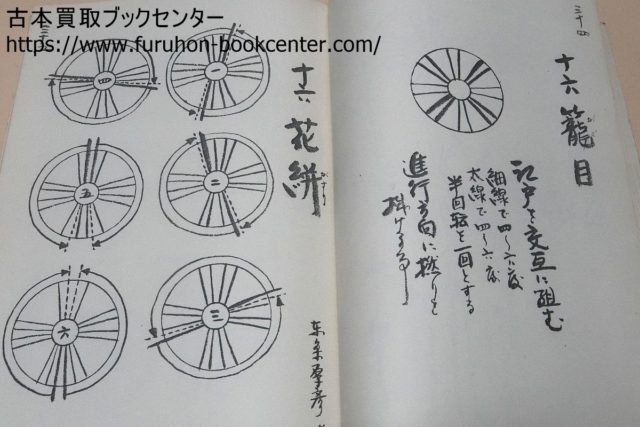 古本買取ブックセンター
https://www.furuhon-bookcenter.com/
三十四
十六籠目
江戸と交互に組む
細線で四〜六度
太線で四〜六度
半回転を一回とする
進行方向に撚りを
掛ける事
十六花絣
一
二
三
四
五
六